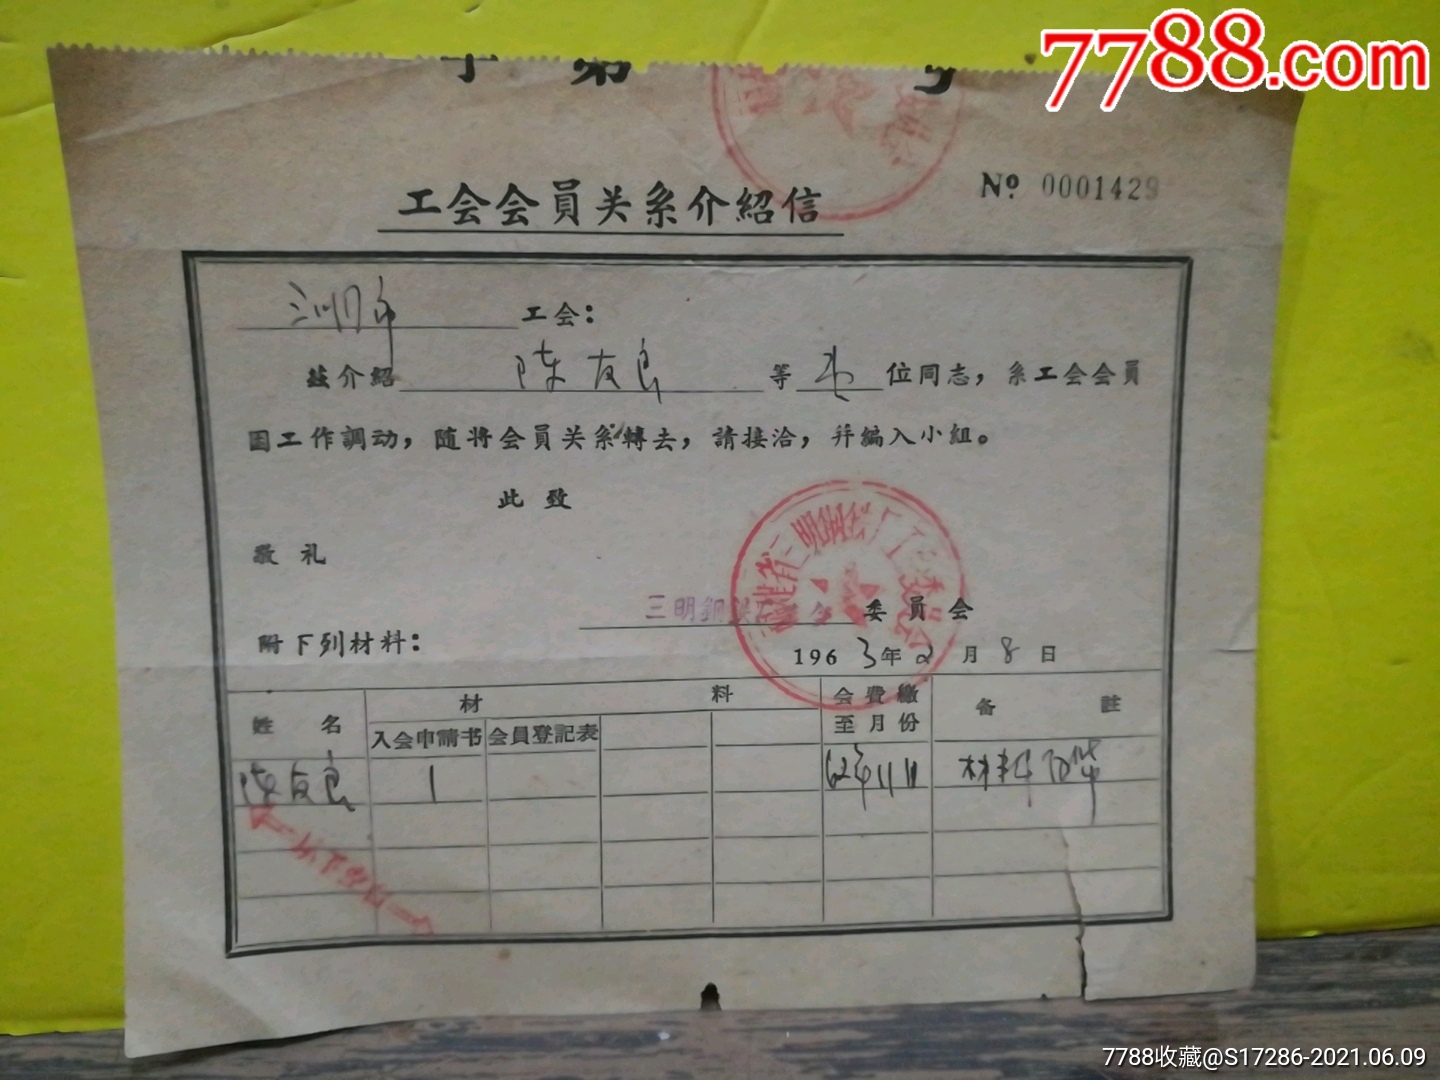 7788.com
字 第 号
工会会員关系介紹信
№ 0001429
工会：
兹介紹 陈友良 等 壱 位同志，系工会会員
因工作調动，随将会員关系轉去，請接洽，并編入小組。
此致
敬礼
三明鋼鉄 委員会
附下列材料：
1963年2月8日
姓名 材料 会費繳至月份 备註
入会申請书 会員登記表
陈友良 1 62年11月 材料
7788收藏@S17286-2021.06.09